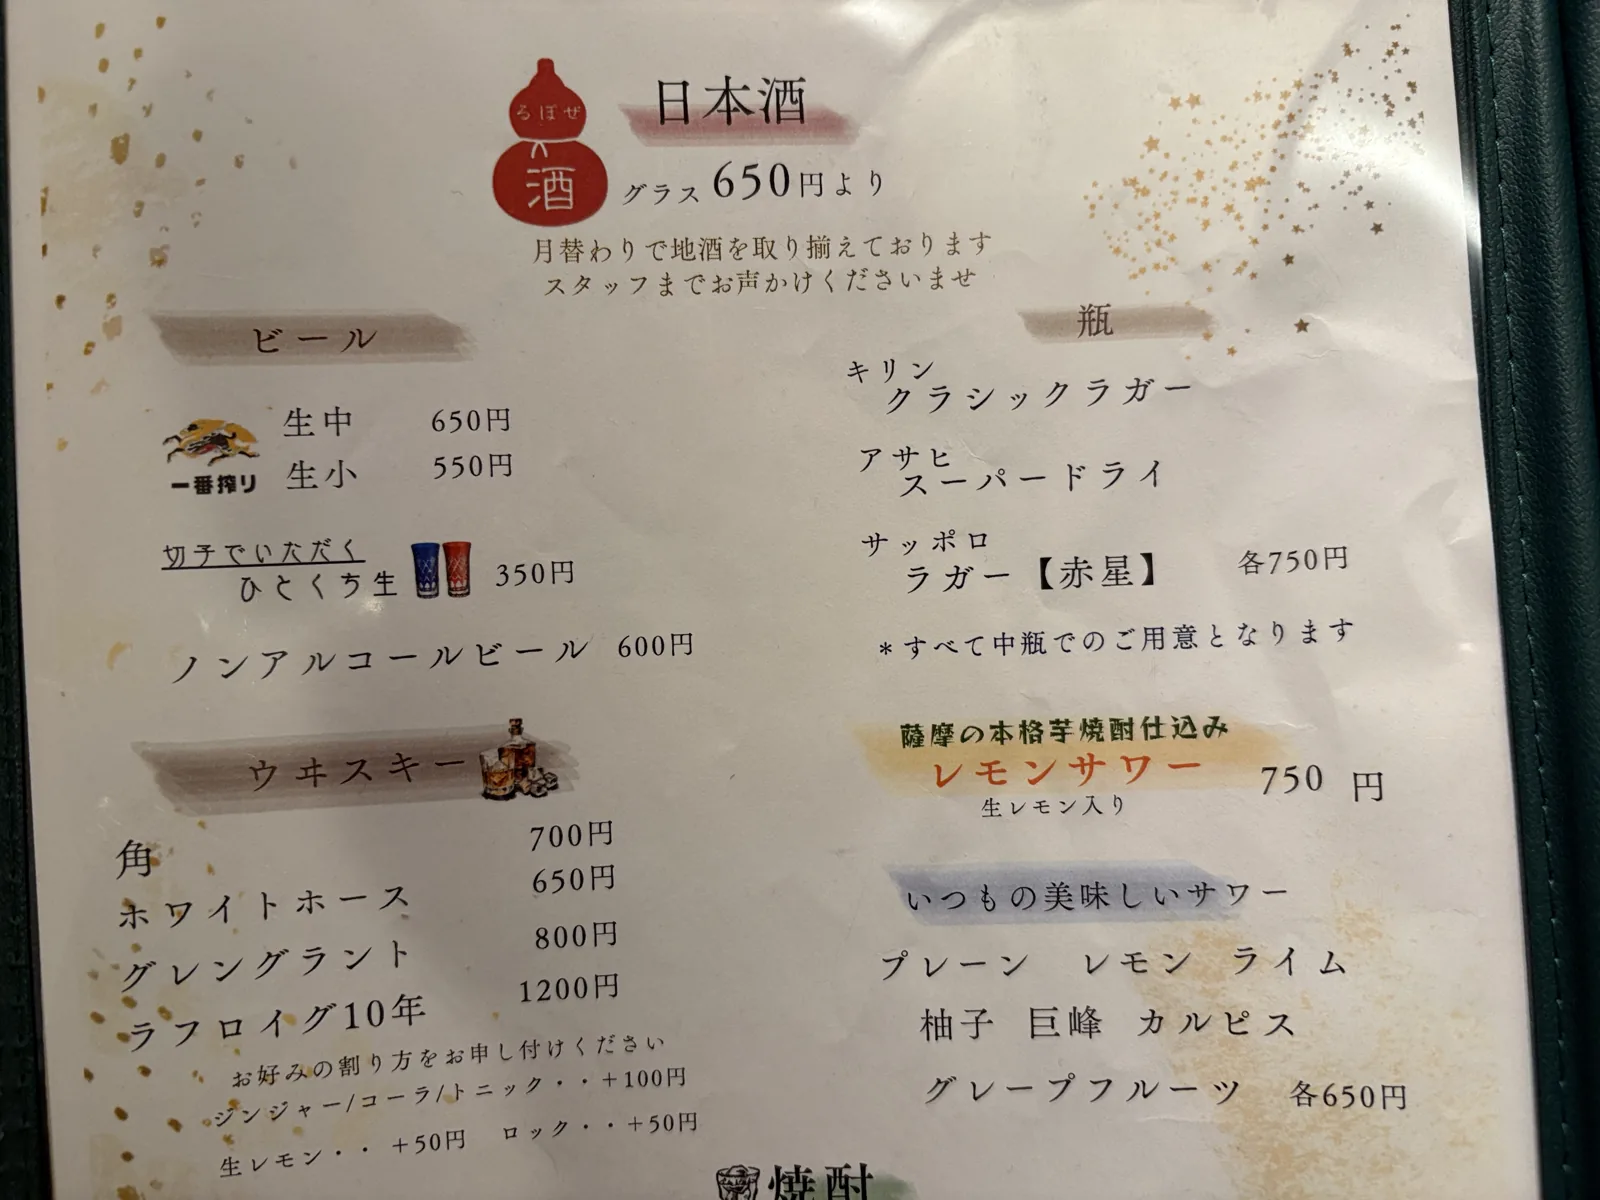 るぼぜ
酒
日本酒
グラス 650円より
月替わりで地酒を取り揃えております
スタッフまでお声かけくださいませ
ビール
一番搾り
生中 650円
生小 550円
切子でいただく
ひとくち生 350円
ノンアルコールビール 600円
瓶
キリン
クラシックラガー
アサヒ
スーパードライ
サッポロ
ラガー【赤星】 各750円
*すべて中瓶でのご用意となります
ウヰスキー
角 700円
ホワイトホース 650円
グレングラント 800円
ラフロイグ10年 1200円
お好みの割り方をお申し付けください
ジンジャー/コーラ/トニック・・+100円
生レモン・・ +50円 ロック・・+50円
薩摩の本格芋焼酎仕込み
レモンサワー 750 円
生レモン入り
いつもの美味しいサワー
プレーン レモン ライム
柚子 巨峰 カルピス
グレープフルーツ 各650円
焼酎